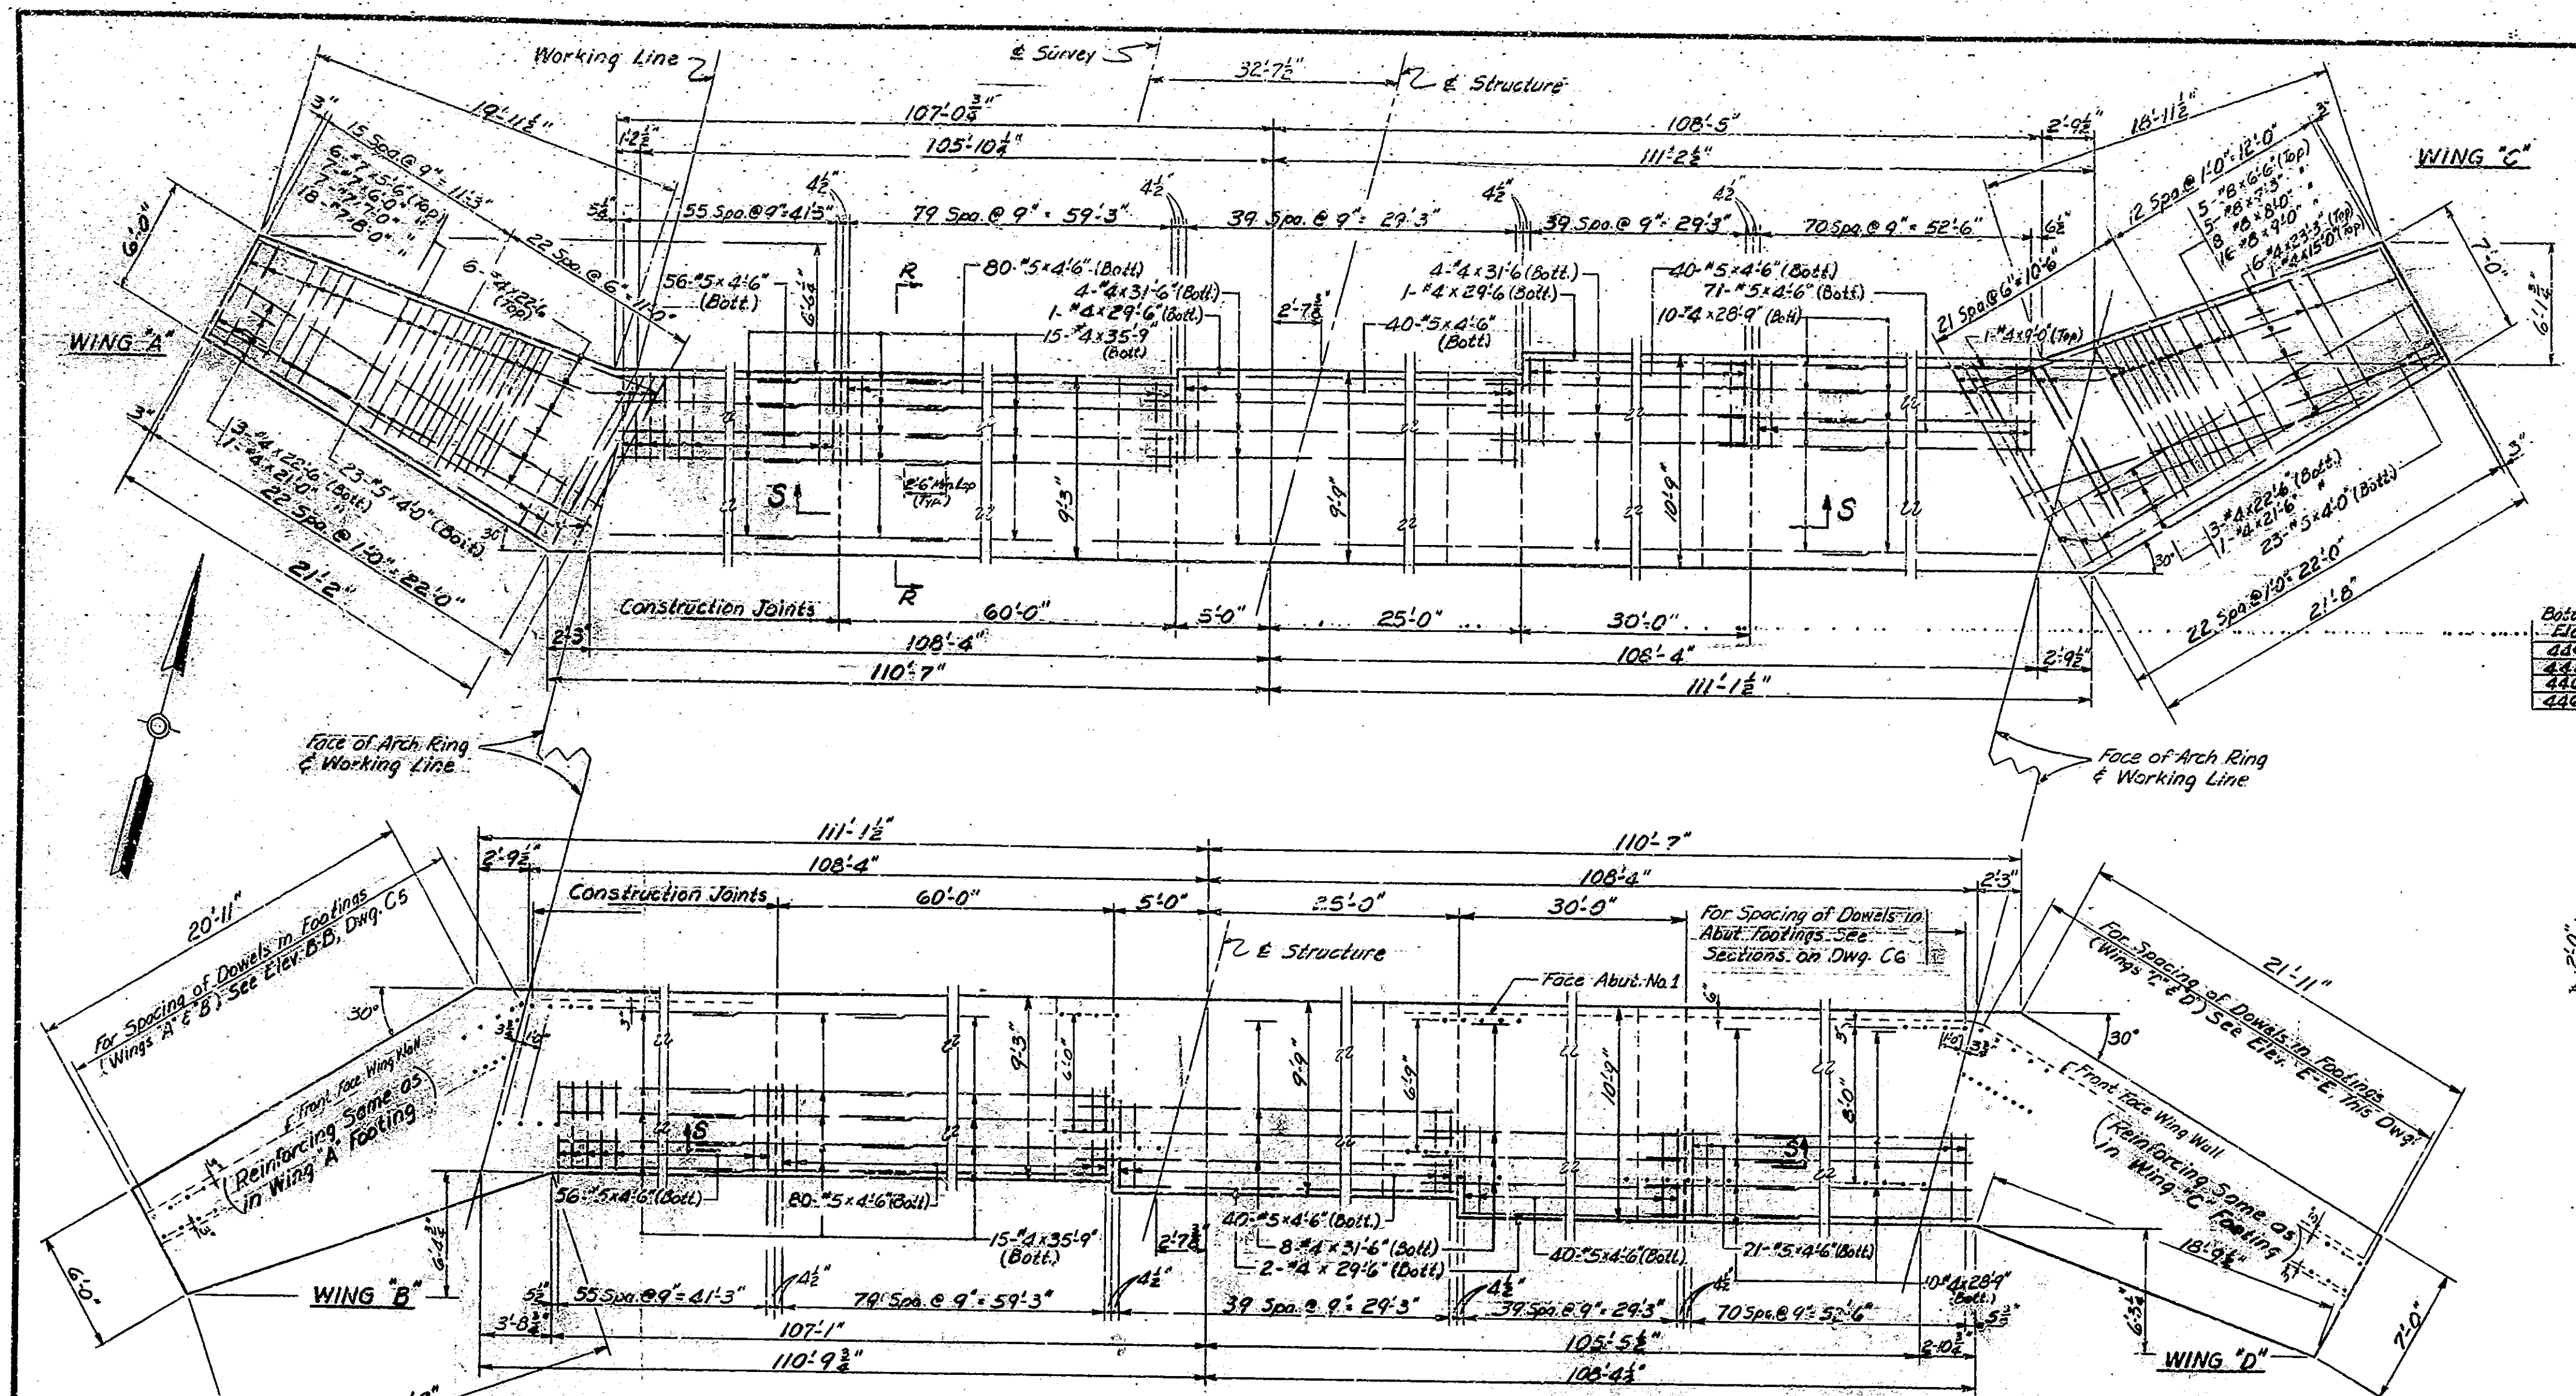 Working Line
₵ Survey
32'-7½"
₵ Structure
19'-11½"
107'-0¾"
108'-5"
2'-9½"
18'-11½"
1'-2½"
105'-10¼"
111'-2½"
WING "C"
3"
15 Spa. @ 9" = 11'-3"
6-#7×5'-6" (Top)
7-#7×6'-0" "
7-#7×7'-0" "
18-#7×8'-0" "
22 Spa. @ 6" = 11'-0"
6-#4×22'-6
(Top)
6'-0"
WING "A"
4½"
4½"
4½"
4½"
55 Spa @ 9" = 41'-3"
79 Spa. @ 9" = 59'-3"
39 Spa. @ 9" = 29'-3"
39 Spa @ 9" = 29'-3"
70 Spa. @ 9" = 52'-6"
6½"
3"
12 Spa @ 1'-0" = 12'-0"
5-#8×6'-6" (Top)
5-#8×7'-3" "
8-#8×8'-0" "
16-#8×9'-0" "
6-#4×23'-3" (Top)
1-#4×15'-0" (Top)
21 Spa @ 6" = 10'-6"
1-#4×9'-0" (Top)
7'-0"
6'-1¾"
56-#5×4'-6"
(Bott.)
6'-6¼"
R
80-#5×4'-6" (Bott)
4-#4×31'-6" (Bott)
1-#4×29'-6" (Bott)
15-#4×35'-9"
(Bott)
2'-7⅜"
4-#4×31'-6 (Bott.)
1-#4×29'-6 (Bott.)
40-#5×4'-6"
(Bott)
40-#5×4'-6" (Bott)
71-#5×4'-6" (Bott)
10-#4×28'-9" (Bott)
3"
3-#4×22'-6 (Bott)
1-#4×21'-0" "
23-#5×4'-0" (Bott)
22 Spa. @ 1'-0" = 22'-0"
21'-2"
30°
S
2'-6" Min. Lap
(Typ.)
9'-3"
9'-9"
10'-9"
S
30°
3-#4×22'-6" (Bott.)
1-#4×21'-6" "
23-#5×4'-0" (Bott)
3"
22 Spa @ 1'-0" = 22'-0"
21'-8"
R
Construction Joints
60'-0"
5'-0"
25'-0"
30'-0"
2'-3"
108'-4"
108'-4"
2'-9½"
110'-7"
111'-1½"
Face of Arch Ring
& Working Line
Face of Arch Ring
& Working Line
111'-1½"
110'-7"
2'-9½"
108'-4"
108'-4"
2'-3"
Construction Joints
60'-0"
5'-0"
25'-0"
30'-0"
For Spacing of Dowels in
Abut. Footings See
Sections on Dwg. C6
₵ Structure
Face Abut. No.1
20'-11"
For Spacing of Dowels in Footings
(Wings "A" & "B") See Elev. B-B, Dwg. C5
30°
Front Face Wing Wall
(Reinforcing Same as
in Wing "A" Footing)
1'-0"
3"
9'-3"
6'-0"
9'-9"
6'-9"
10'-9"
6"
3"
8'-0"
21'-11"
For Spacing of Dowels in Footings
(Wings "C" & "D") See Elev. E-E, This Dwg.
30°
Front Face Wing Wall
(Reinforcing Same as
in Wing "C" Footing)
18'-9½"
S
S
56-#5×4'-6" (Bott)
80-#5×4'-6" (Bott)
15-#4×35'-9"
(Bott.)
2'-7⅜"
40-#5×4'-6" (Bott.)
8-#4×31'-6" (Bott)
2-#4×29'-6" (Bott)
40-#5×4'-6" (Bott)
21-#5×4'-6" (Bott)
10-#4×28'-9"
(Bott.)
6'-0"
6'-4¾"
WING "B"
4½"
4½"
4½"
4½"
55 Spa. @ 9" = 41'-3"
79 Spa. @ 9" = 59'-3"
39 Spa. @ 9" = 29'-3"
39 Spa. @ 9" = 29'-3"
70 Spa. @ 9" = 52'-6"
3'-8¾"
107'-1"
105'-5½"
2'-10¾"
110'-9¾"
108'-4¼"
WING "D"
7'-0"